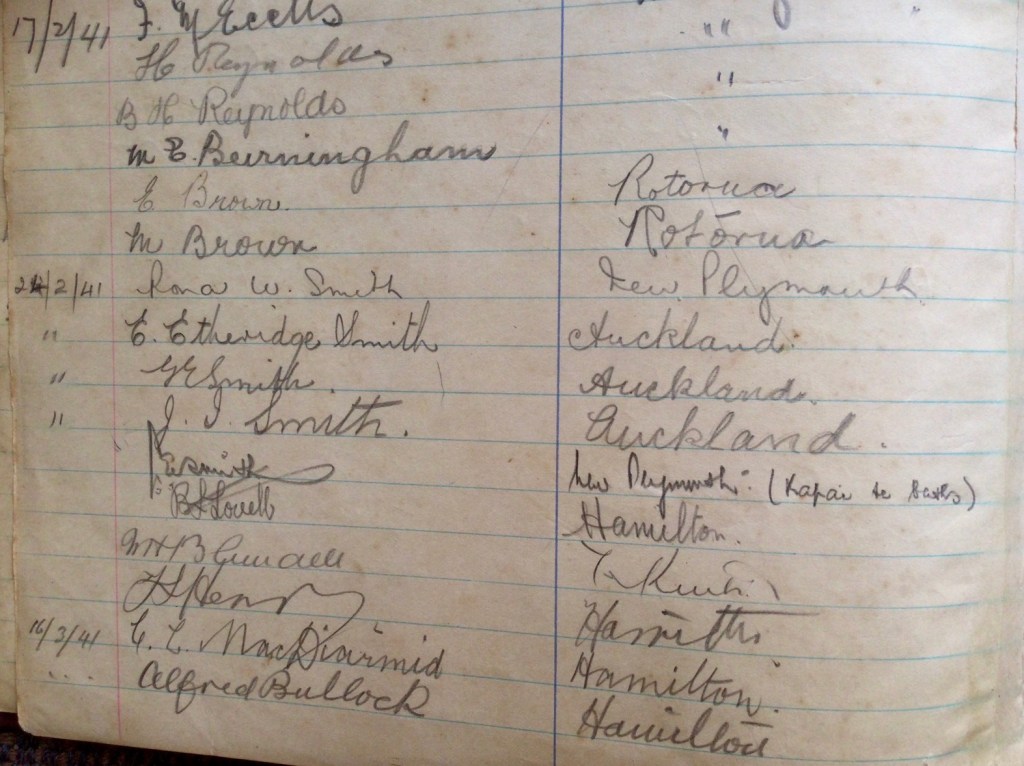 17/2/41 F. M Eccles "
H Reynolds "
B H Reynolds "
M E. Burningham Rotorua
E Brown. Rotorua
M Brown New Plymouth
24/2/41 Rona W. Smith Auckland.
" E. Etheridge Smith Auckland.
" G E Smith. Auckland.
" J. I. Smith. New Plymouth. (Kapai te baths)
E Smith Hamilton.
B L Lovell Te Kuiti
B
Henry Hamilton
16/3/41 C. L. MacDiarmid Hamilton.
" Alfred Bullock Hamilton